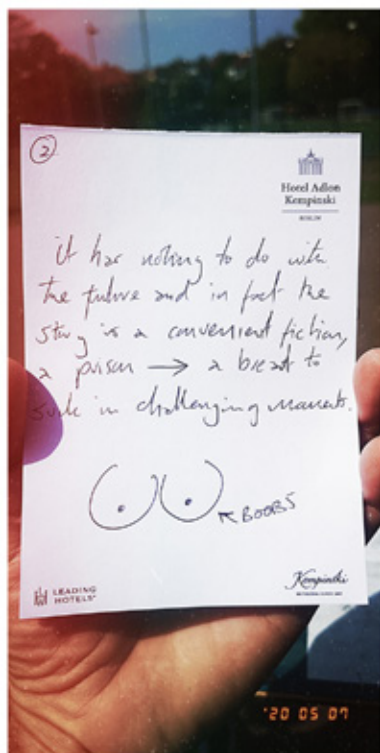 2
Hotel Adlon
Kempinski
BERLIN
it has nothing to do with
the future and in fact the
story is a convenient fiction,
a prison → a breast to
suck in challenging moments.
BOOBS
LEADING
HOTELS
Kempinski
'20 05 07